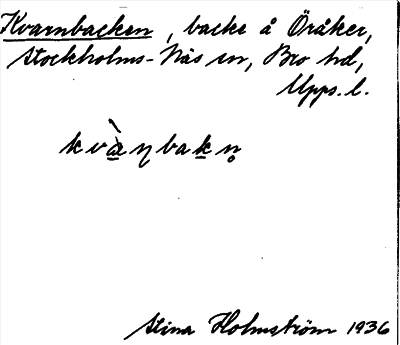 Kvarnbacken, backe å Öråker,
Stockholms-Näs sn, Bro hd,
Upps. l.
kvàɳbakn̥
Stina Holmström 1936